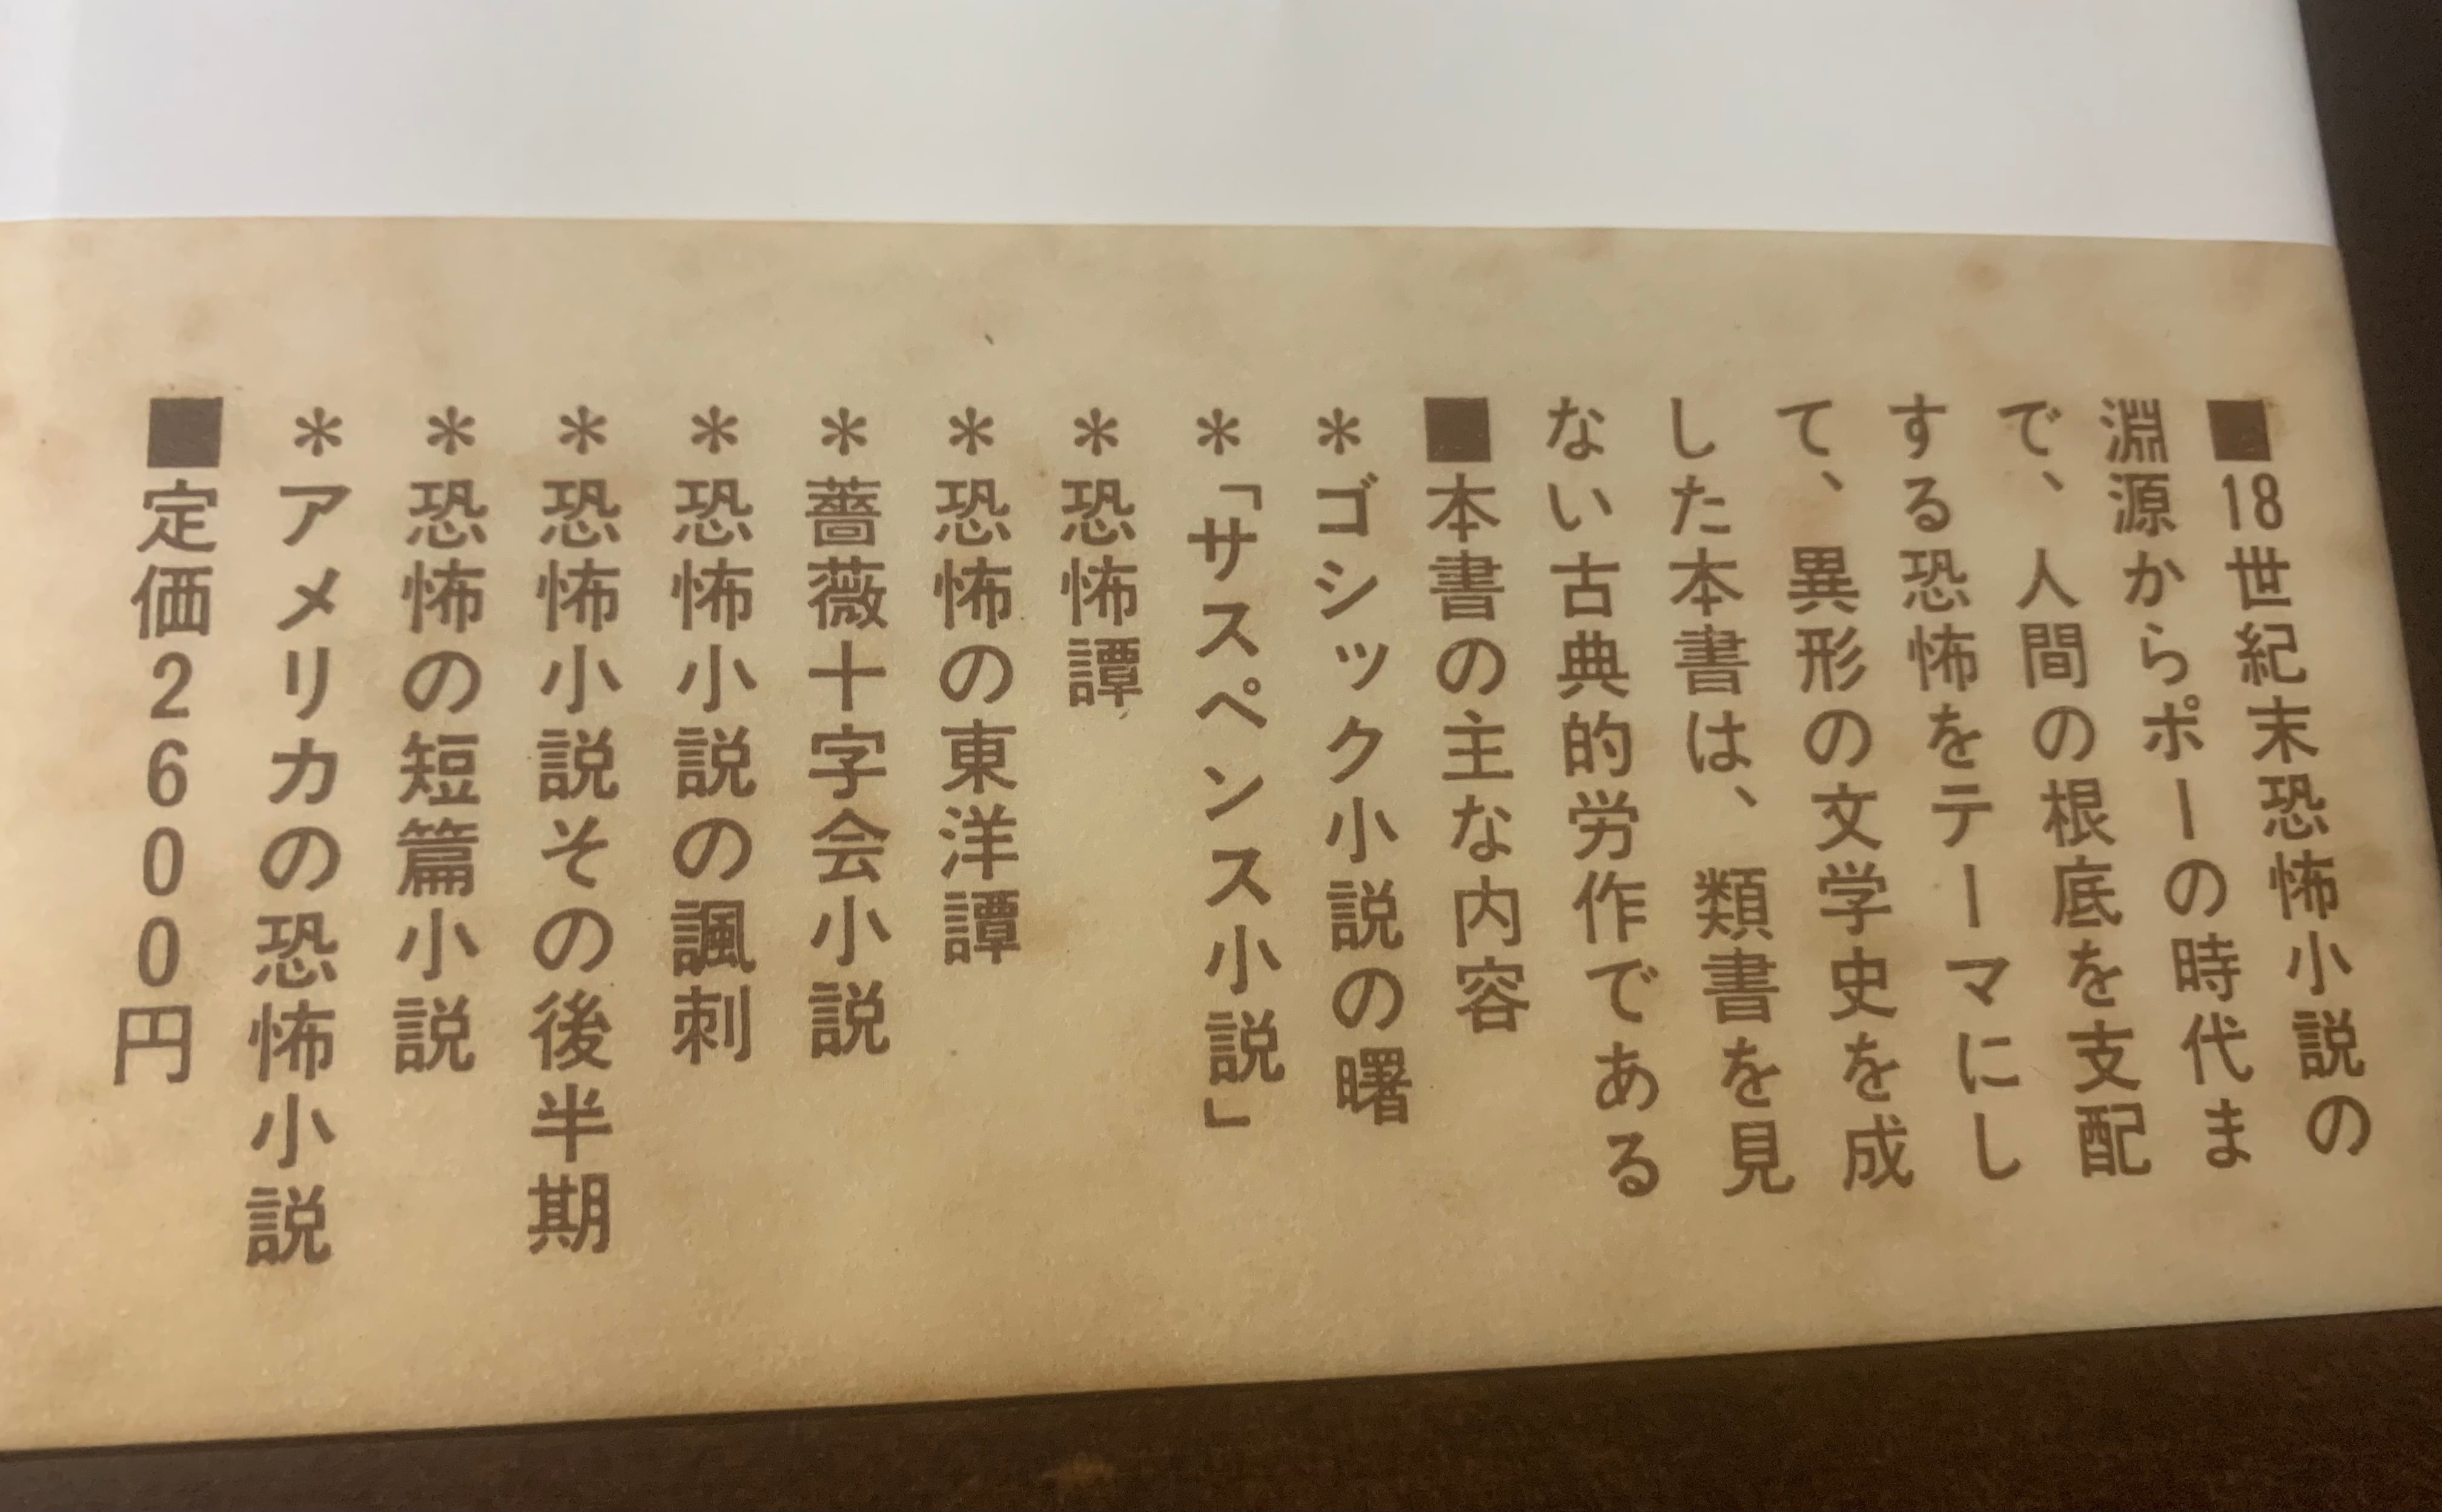 ■18世紀末恐怖小説の
淵源からポーの時代ま
で、人間の根底を支配
する恐怖をテーマにし
て、異形の文学史を成
した本書は、類書を見
ない古典的労作である
■本書の主な内容
＊ゴシック小説の曙
＊「サスペンス小説」
＊恐怖譚
＊恐怖の東洋譚
＊薔薇十字会小説
＊恐怖小説の諷刺
＊恐怖小説その後半期
＊恐怖の短篇小説
＊アメリカの恐怖小説
■定価2600円